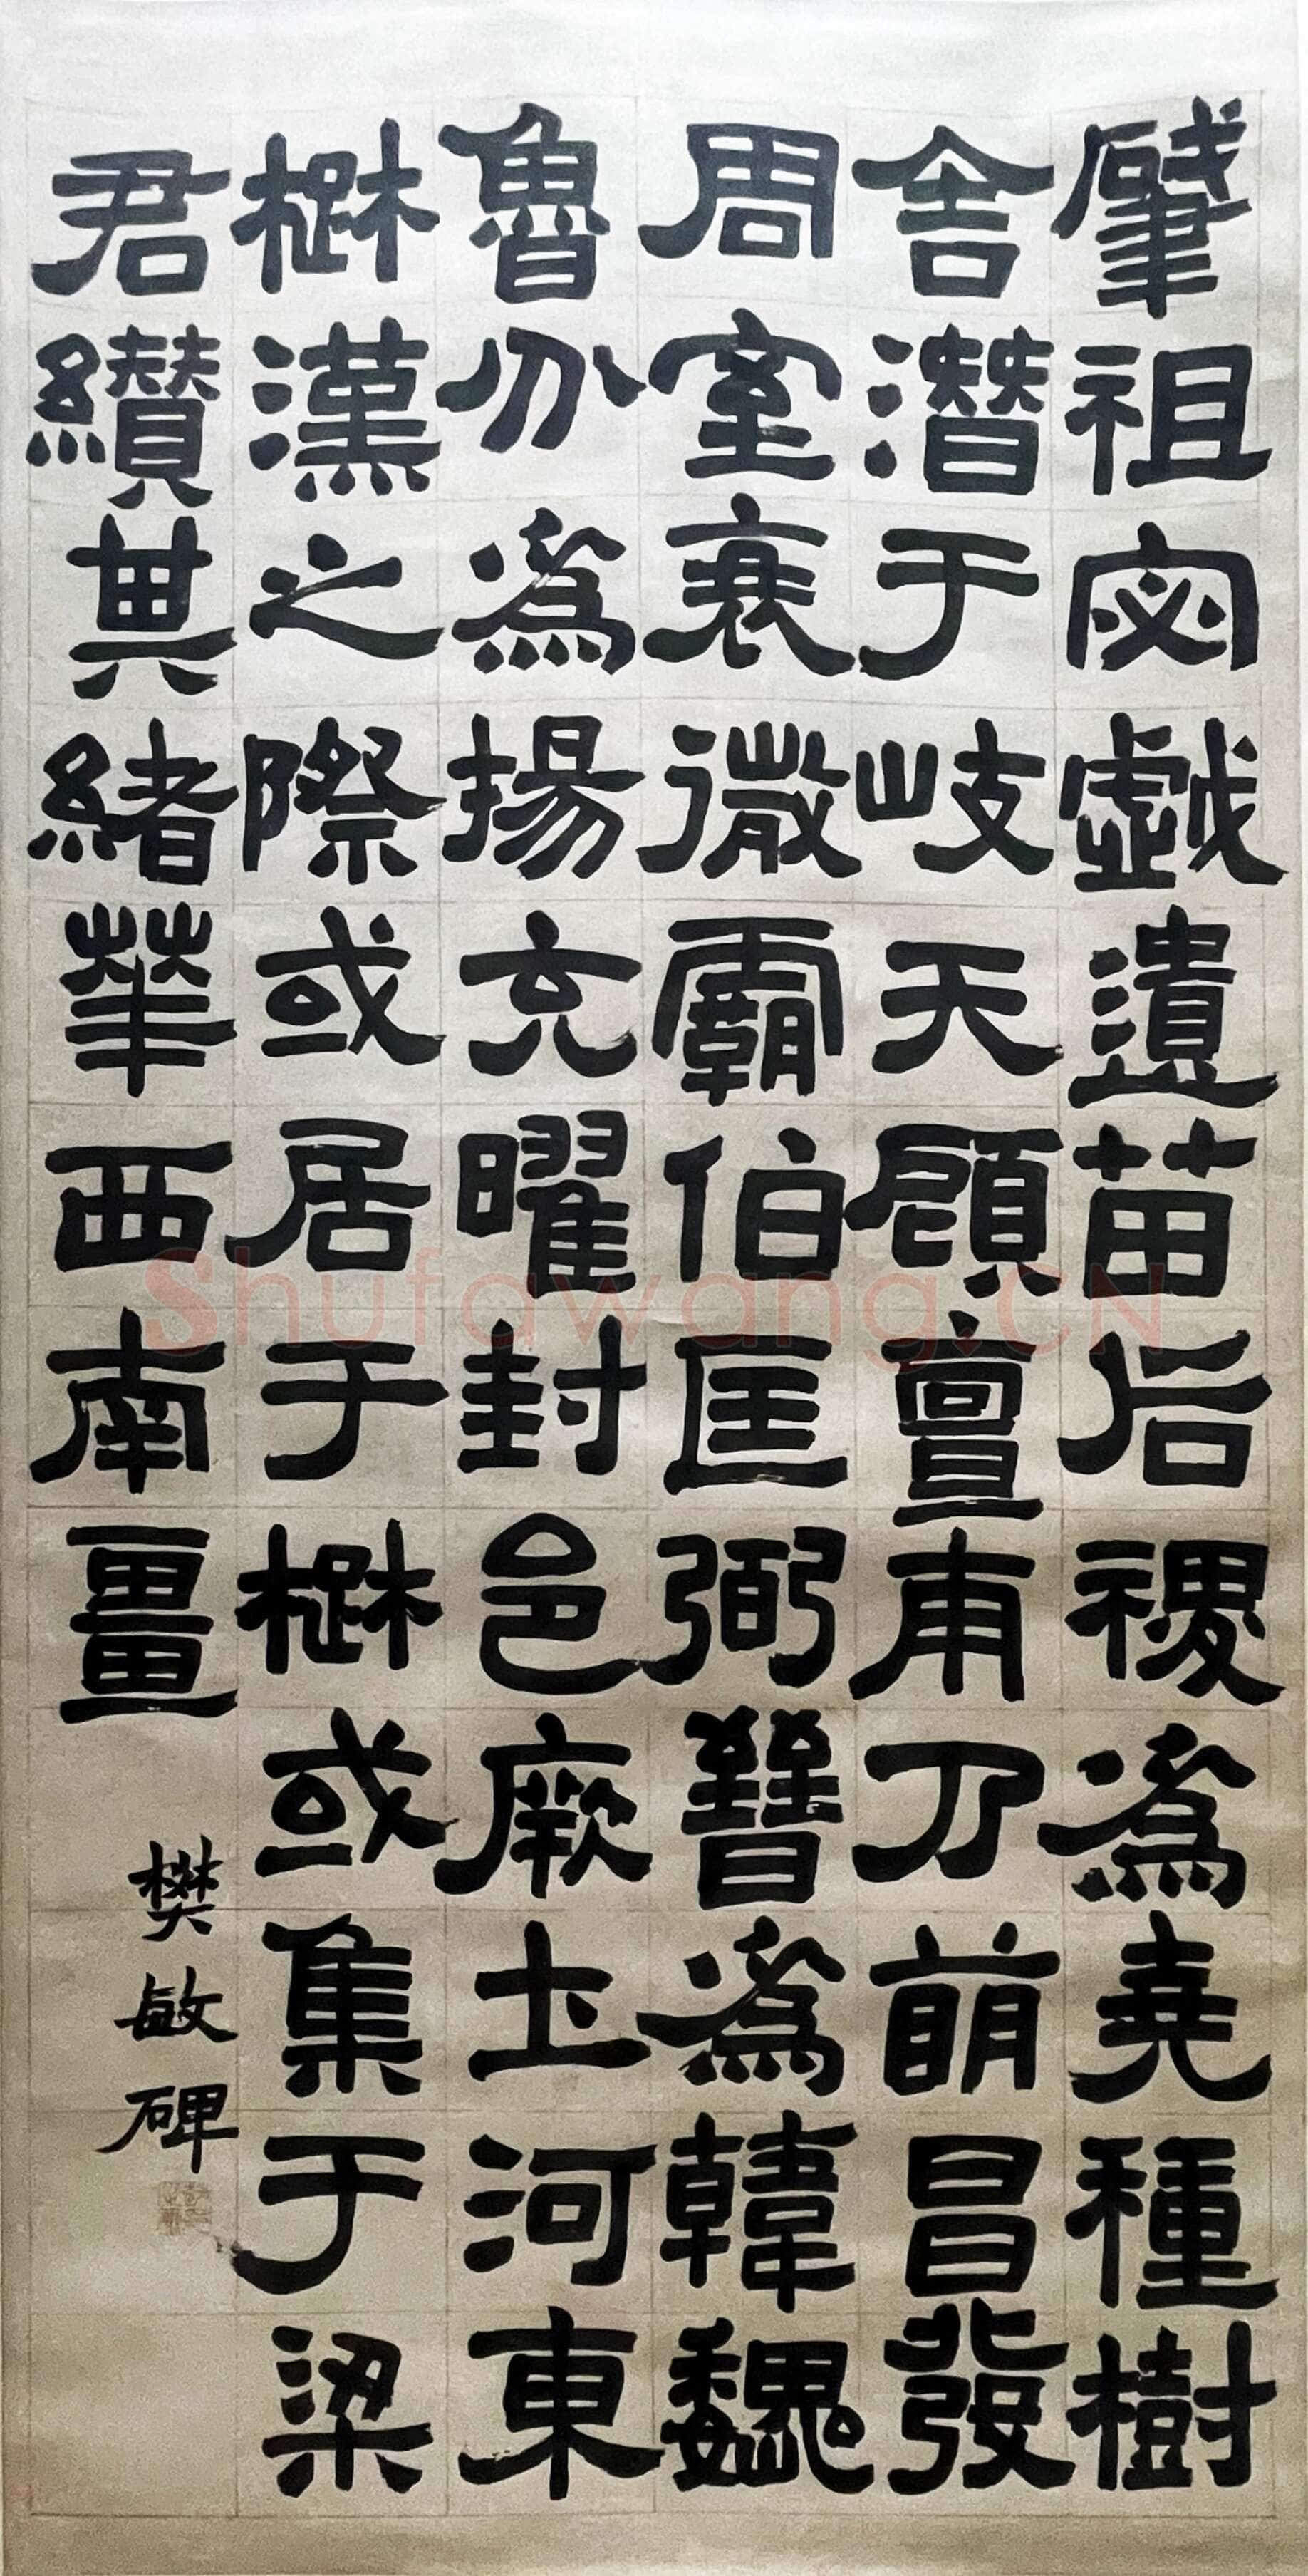 肇祖宓戲遺苗后稷爲堯種樹
舍潛于岐天顧亶甫乃萌昌發
周室衰微霸伯匡弼晉爲韓魏
魯分爲揚充曜封邑厥土河東
楚漢之際或居于楚或集于梁
君纘其緒華西南畺
樊敏碑
Shufawang.CN